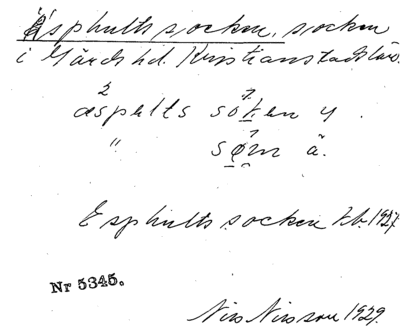 Äsphults socken, socken
i Gärds hd. Kristianstads län.
äspelts soken y.
" søm ä.
Esphults socken t.b. 1927
Nr 5345.
Nils Nilsson 1929.